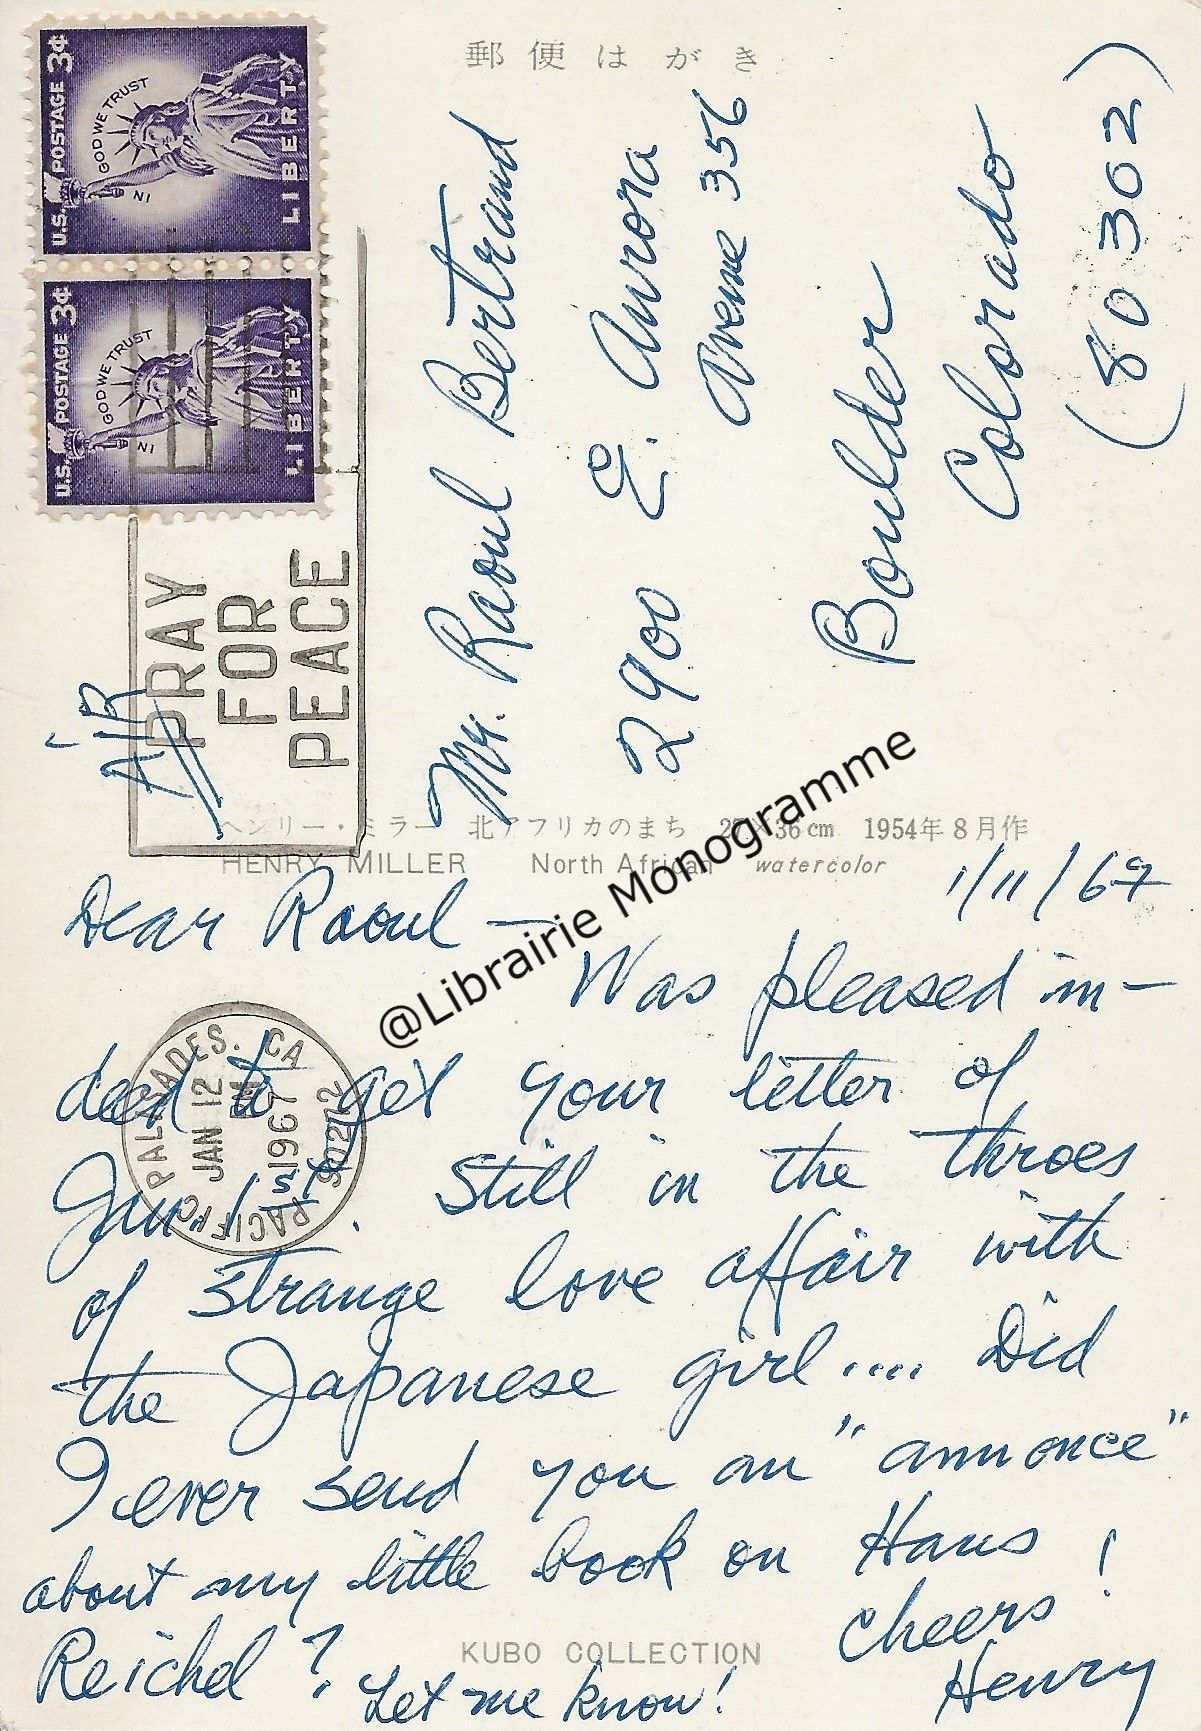 郵便はがき
U.S. POSTAGE 3¢
IN GOD WE TRUST
LIBERTY
U.S. POSTAGE 3¢
IN GOD WE TRUST
LIBERTY
PRAY
FOR
PEACE
AIR
Mr. Raoul Bertrand
2900 E. Aurora
Avenue 356
Boulder
Colorado
(80302)
ヘンリー・ミラー 北アフリカのまち 27×36cm 1954年8月作
HENRY MILLER North African watercolor
@Librairie Monogramme
1/11/67
Dear Raoul —
Was pleased in-
deed to get your letter of
Jan. 1st. Still in the throes
of strange love affair with
the Japanese girl.... Did
I ever send you an "annonce"
about my little book on Hans
Reichel? Let me know!
Cheers!
Henry
PACIFIC PALISADES. CA
JAN 12
PM
1967
90272
KUBO COLLECTION